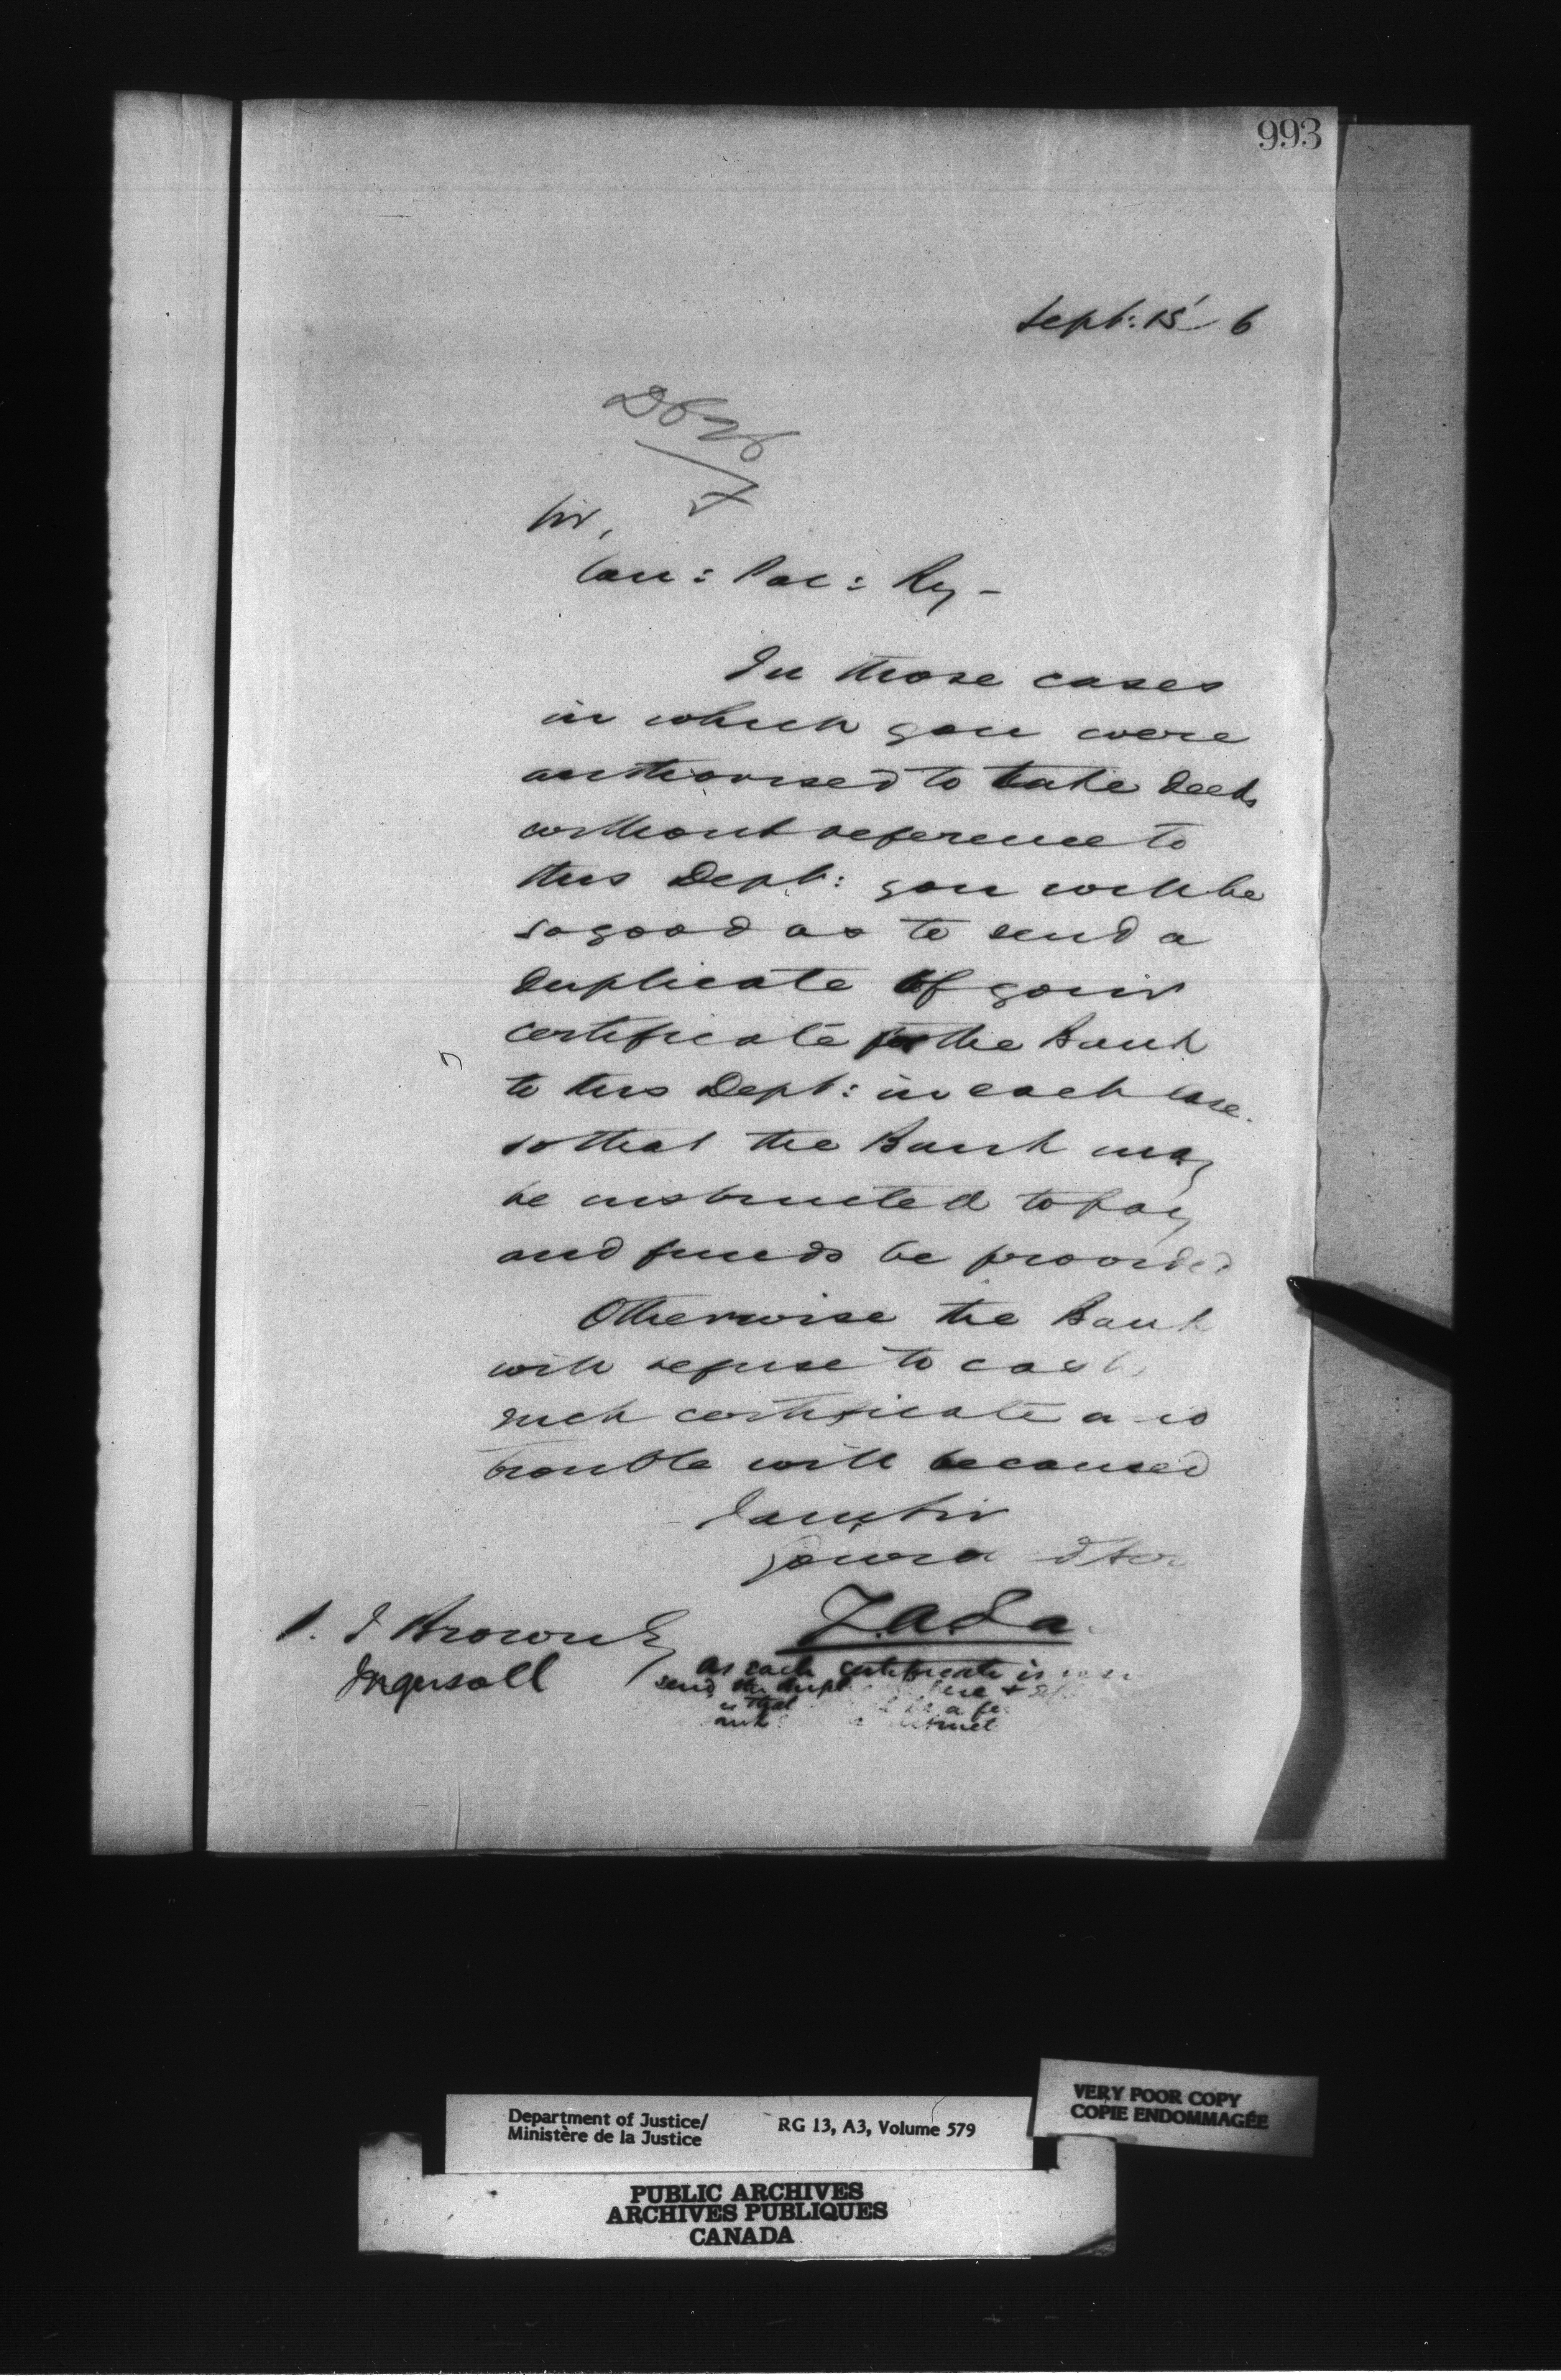 993
Sept: 15 6
Sir,
Can: Pac: Ry -
In those cases
in which you were
authorised to take deeds
without reference to
this Dept: you will be
so good as to send a
duplicate of your
certificate for the Bank
to this Dept: in each case.
so that the Bank may
be instructed to pay
and funds be provided
Otherwise the Bank
will refuse to cash
such certificate and
trouble will be caused
I am Sir
Your
Z.A.La
J Brown Esq
Ingersoll
As each certificate is
send the dupl here +
so that a
VERY POOR COPY
COPIE ENDOMMAGÉE
Department of Justice/
Ministère de la Justice
RG 13, A3, Volume 579
PUBLIC ARCHIVES
ARCHIVES PUBLIQUES
CANADA